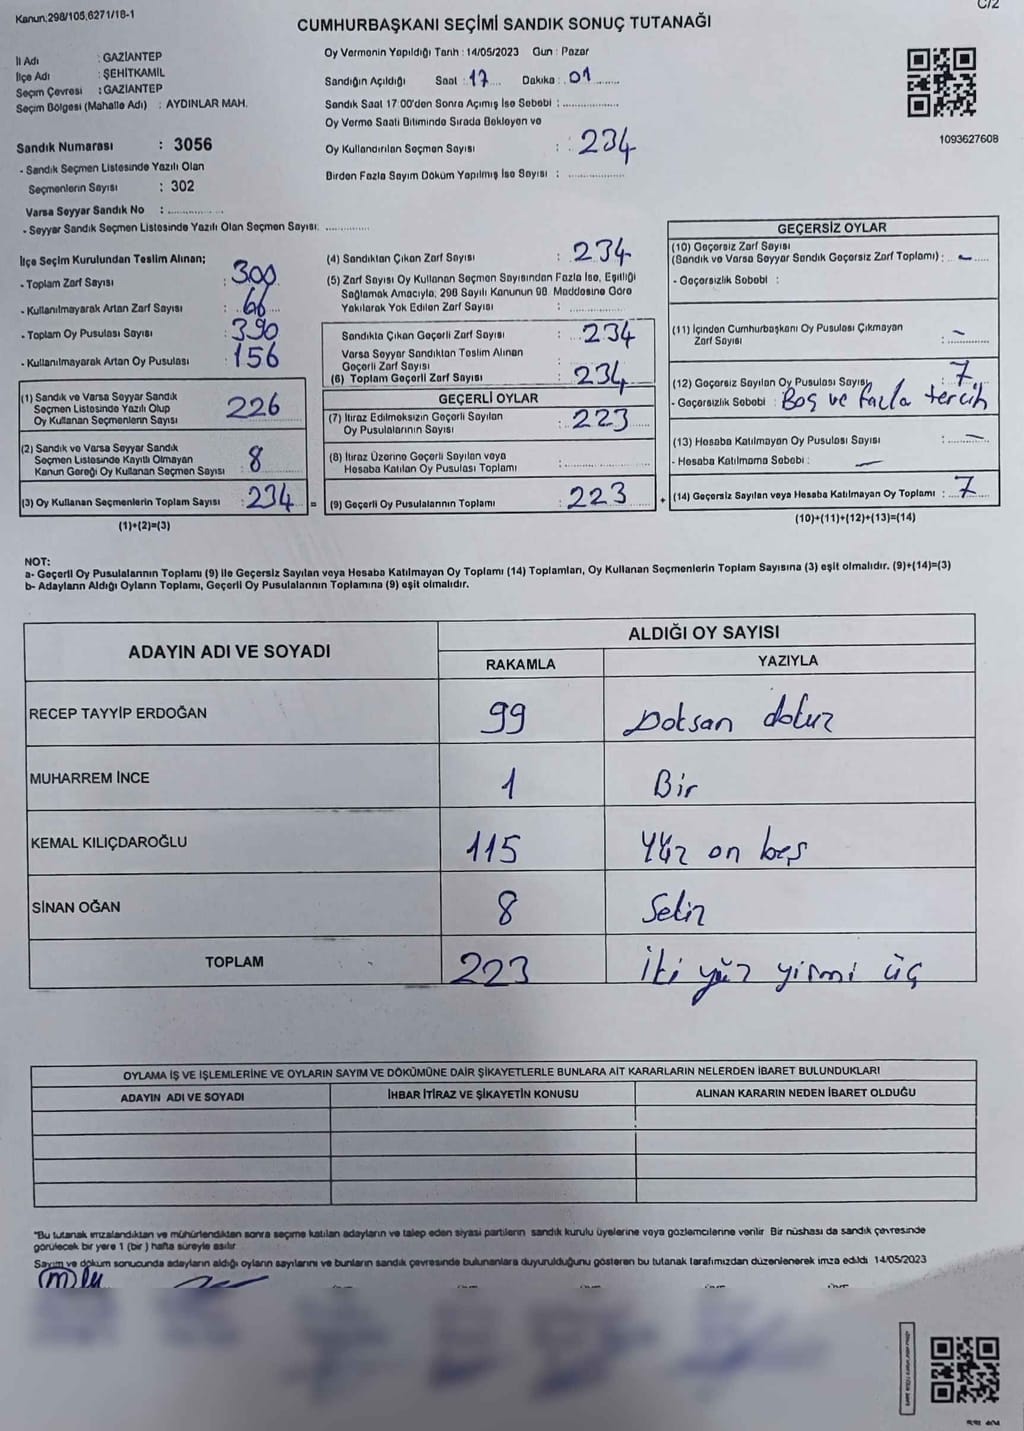 Kanun;298/105,6271/18-1
C/2
CUMHURBAŞKANI SEÇİMİ SANDIK SONUÇ TUTANAĞI
İl Adı : GAZİANTEP
İlçe Adı : ŞEHİTKAMİL
Seçim Çevresi : GAZİANTEP
Seçim Bölgesi (Mahalle Adı) : AYDINLAR MAH.
Sandık Numarası : 3056
- Sandık Seçmen Listesinde Yazılı Olan
Seçmenlerin Sayısı : 302
Varsa Seyyar Sandık No : ..............
- Seyyar Sandık Seçmen Listesinde Yazılı Olan Seçmen Sayısı: ............
Oy Vermenin Yapıldığı Tarih : 14/05/2023 Gün : Pazar
Sandığın Açıldığı Saat : 17 Dakika : 01
Sandık Saat 17:00'den Sonra Açımış İse Sebebi : ..............
Oy Verme Saati Bitiminde Sırada Bekleyen ve
Oy Kullandırılan Seçmen Sayısı : 234
Birden Fazla Sayım Döküm Yapılmış İse Sayısı : ..............
1093627608
İlçe Seçim Kurulundan Teslim Alınan;
- Toplam Zarf Sayısı : 300
- Kullanılmayarak Artan Zarf Sayısı : 66
- Toplam Oy Pusulası Sayısı : 390
- Kullanılmayarak Artan Oy Pusulası : 156
(1) Sandık ve Varsa Seyyar Sandık
Seçmen Listesinde Yazılı Olup
Oy Kullanan Seçmenlerin Sayısı 226
(2) Sandık ve Varsa Seyyar Sandık
Seçmen Listesinde Kayıtlı Olmayan
Kanun Gereği Oy Kullanan Seçmen Sayısı : 8
(3) Oy Kullanan Seçmenlerin Toplam Sayısı : 234 =
(1)+(2)=(3)
(4) Sandıktan Çıkan Zarf Sayısı : 234
(5) Zarf Sayısı Oy Kullanan Seçmen Sayısından Fazla İse, Eşitliği
Sağlamak Amacıyla, 298 Sayılı Kanunun 98 Maddesine Göre
Yakılarak Yok Edilen Zarf Sayısı : ..............
Sandıkta Çıkan Geçerli Zarf Sayısı : 234
Varsa Seyyar Sandıktan Teslim Alınan
Geçerli Zarf Sayısı : ..............
(6) Toplam Geçerli Zarf Sayısı : 234
GEÇERLİ OYLAR
(7) İtiraz Edilmeksizin Geçerli Sayılan
Oy Pusulalarının Sayısı : 223
(8) İtiraz Üzerine Geçerli Sayılan veya
Hesaba Katılan Oy Pusulası Toplamı : ..............
(9) Geçerli Oy Pusulalarının Toplamı : 223 +
GEÇERSİZ OYLAR
(10) Geçersiz Zarf Sayısı
(Sandık ve Varsa Seyyar Sandık Geçersiz Zarf Toplamı) : -
- Geçersizlik Sebebi :
(11) İçinden Cumhurbaşkanı Oy Pusulası Çıkmayan
Zarf Sayısı : -
(12) Geçersiz Sayılan Oy Pusulası Sayısı : 7
- Geçersizlik Sebebi : Boş ve fazla tercih
(13) Hesaba Katılmayan Oy Pusulası Sayısı : -
- Hesaba Katılmama Sebebi : -
(14) Geçersiz Sayılan veya Hesaba Katılmayan Oy Toplamı : 7
(10)+(11)+(12)+(13)=(14)
NOT:
a- Geçerli Oy Pusulalarının Toplamı (9) ile Geçersiz Sayılan veya Hesaba Katılmayan Oy Toplamı (14) Toplamları, Oy Kullanan Seçmenlerin Toplam Sayısına (3) eşit olmalıdır. (9)+(14)=(3)
b- Adayların Aldığı Oyların Toplamı, Geçerli Oy Pusulalarının Toplamına (9) eşit olmalıdır.
ADAYIN ADI VE SOYADI ALDIĞI OY SAYISI
RAKAMLA YAZIYLA
RECEP TAYYİP ERDOĞAN 99 Doksan dokuz
MUHARREM İNCE 1 Bir
KEMAL KILIÇDAROĞLU 115 Yüz on beş
SİNAN OĞAN 8 Sekiz
TOPLAM 223 İki yüz yirmi üç
OYLAMA İŞ VE İŞLEMLERİNE VE OYLARIN SAYIM VE DÖKÜMÜNE DAİR ŞİKAYETLERLE BUNLARA AİT KARARLARIN NELERDEN İBARET BULUNDUKLARI
ADAYIN ADI VE SOYADI İHBAR İTİRAZ VE ŞİKAYETİN KONUSU ALINAN KARARIN NEDEN İBARET OLDUĞU
*Bu tutanak imzalandıktan ve mühürlendikten sonra seçime katılan adayların ve talep eden siyasi partilerin sandık kurulu üyelerine veya gözlemcilerine verilir Bir nüshası da sandık çevresinde
görülecek bir yere 1 (bir ) hafta süreyle asılır
Sayım ve döküm sonucunda adayların aldığı oyların sayılarını ve bunların sandık çevresinde bulunanlara duyurulduğunu gösteren bu tutanak tarafımızdan düzenlenerek imza edildi 14/05/2023